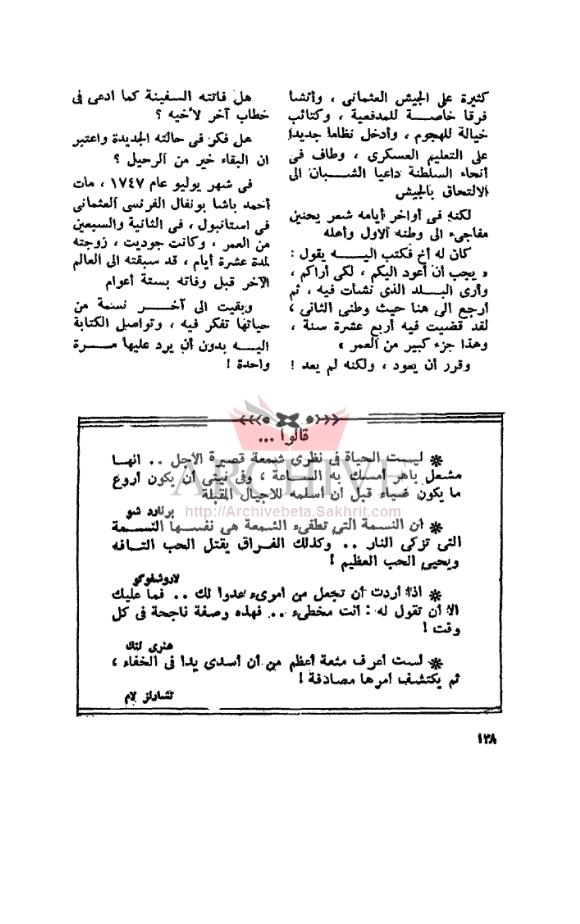 كثيرة على الجيش العثمانى ، وأنشأ
فرقا خاصــة للمدفعية ، وكتائب
خيالة للهجوم ، وأدخل نظاما جديدا
على التعليم العسكرى ، وطاف فى
أنحاء السلطنة داعيا الشــبان الى
الالتحاق بالجيش
لكنه فى أواخر أيامه شعر بحنين
مفاجىء الى وطنه الاول وأهله
كان له أخ فكتب اليــه يقول :
« يجب أن أعود اليكم ، لكى أراكم ،
وأرى البــلد الذى نشأت فيه ، ثم
أرجع الى هنا حيث وطنى الثانى ،
لقد قضيت فيه أربع عشرة سنة ،
وهذا جزء كبير من العمر »
وقرر أن يعود ، ولكنه لم يعد !
هل فاتته السفينة كما ادعى فى
خطاب آخر لأخيه ؟
هل فكر فى حالته الجديدة واعتبر
ان البقاء خير من الرحيل ؟
فى شهر يوليو عام ١٧٤٧ ، مات
أحمد باشا بونفال الفرنسى العثمانى
فى استانبول ، فى الثانية والسبعين
من العمر ، وكانت جوديت ، زوجته
لمدة عشرة أيام ، قد سبقته الى العالم
الآخر قبل وفاته بستة أعوام
وبقيت الى آخــر نسمة من
حياتها تفكر فيه ، وتواصل الكتابة
اليــه بدون أن يرد عليها مــرة
واحدة !
قالوا ...
❋ ليست الحياة فى نظرى شمعة قصيرة الأجل .. انهــا
مشعل باهر أمسك به الســاعة ، وفى نيتى أن يكون أروع
ما يكون ضياء قبل أن أسلمه للأجيال المقبلة
برنارد شو
❋ ان النسمة التى تطفىء الشمعة هى نفســها النســمة
التى تزكى النار .. وكذلك الفــراق يقتل الحب التــافه
ويحيى الحب العظيم !
لاروشفوكو
❋ اذا أردت أن تجعل من امرىء عدوا لك .. فما عليك
الا أن تقول له : أنت مخطىء .. فهذه وصفة ناجحة فى كل
وقت !
هنرى لنك
❋ لست أعرف متعة أعظم من أن أسدى يدا فى الخفاء ،
ثم يكتشف أمرها مصادفة !
تشارلز لام
ARCHIVE
http://Archivebeta.Sakhrit.com
١٣٨